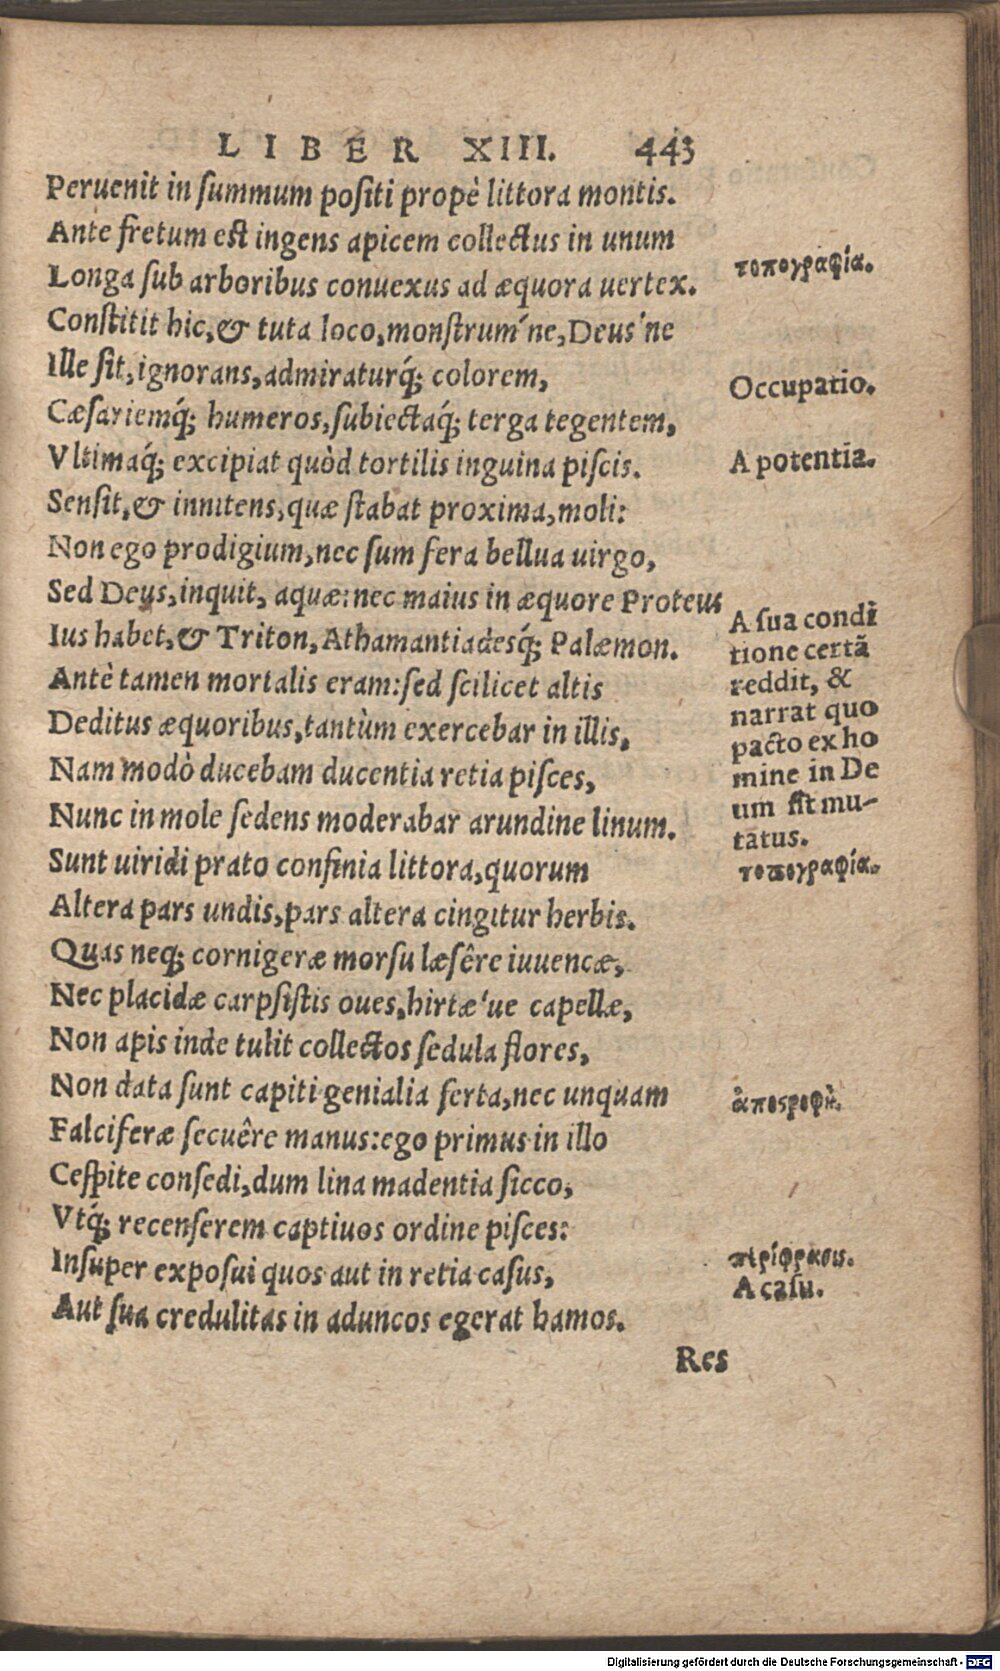 LIBER XIII. 443
Peruenit in ſummum poſiti propè littora montis.
Ante fretum eſt ingens apicem collectus in unum
τοπογραφία.
Longa ſub arboribus conuexus ad æquora uertex.
Conſtitit hic,& tuta loco,monſtrum'ne,Deus'ne
Ille ſit,ignorans,admiraturq́; colorem,
Occupatio.
Cæſariemq́; humeros,ſubiectaq́; terga tegentem,
Vltimaq́; excipiat quòd tortilis inguina piſcis.
A potentia.
Senſit,& innitens,quæ ſtabat proxima,moli:
Non ego prodigium,nec ſum fera bellua uirgo,
Sed Deus,inquit, aquæ:nec maius in æquore Proteus
Ius habet,& Triton,Athamantiadesq́; Palæmon.
Antè tamen mortalis eram:ſed ſcilicet altis
Deditus æquoribus,tantùm exercebar in illis,
Nam modò ducebam ducentia retia piſces,
Nunc in mole ſedens moderabar arundine linum.
A ſua condi
tione certã
reddit, &
narrat quo
pacto ex ho
mine in De
um ſit mu-
tatus.
Sunt uiridi prato confinia littora,quorum
τοπογραφία.
Altera pars undis,pars altera cingitur herbis.
Quas neq; cornigeræ morſu læſêre iuuencæ,
Nec placidæ carpſiſtis oues,hirtæ'ue capellæ,
Non apis inde tulit collectos ſedula flores,
Non data ſunt capiti genialia ſerta,nec unquam
ἀποςροφὴ.
Falciferæ ſecuêre manus:ego primus in illo
Ceſpite conſedi,dum lina madentia ſicco,
Vtq́; recenſerem captiuos ordine piſces:
Inſuper expoſui quos aut in retia caſus,
περίφρασις.
A caſu.
Aut ſua credulitas in aduncos egerat hamos.
Res
Digitalisierung gefördert durch die Deutsche Forschungsgemeinschaft - DFG